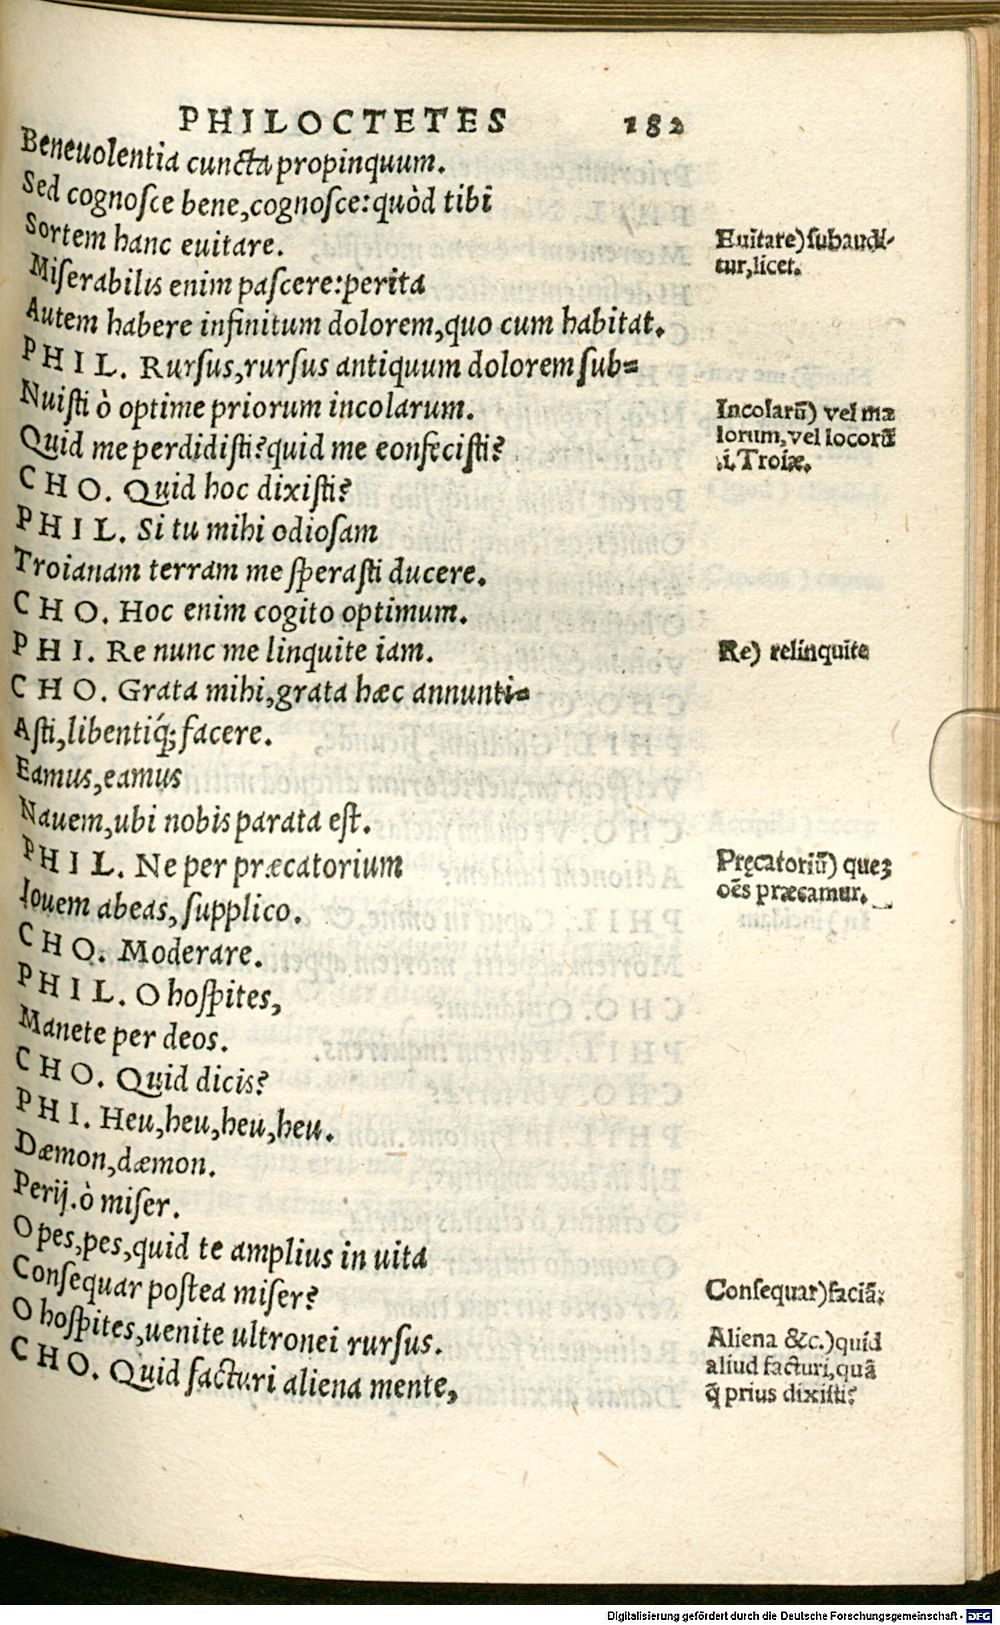 PHILOCTETES 182
Beneuolentia cuncta propinquum.
Sed cognosce bene,cognosce:quòd tibi
Sortem hanc euitare.
Euitare) subaudi-
tur,licet.
Miserabilis enim pascere:perita
Autem habere infinitum dolorem,quo cum habitat.
PHIL. Rursus,rursus antiquum dolorem sub-
Nuisti ò optime priorum incolarum.
Incolarū) vel ma
lorum,vel locorū
.i.Troiæ.
Quid me perdidisti?quid me confecisti?
CHO. Quid hoc dixisti?
PHIL. Si tu mihi odiosam
Troianam terram me sperasti ducere.
CHO. Hoc enim cogito optimum.
PHI. Re nunc me linquite iam.
Re) relinquite
CHO. Grata mihi,grata hæc annunti-
Asti,libentiq́; facere.
Eamus,eamus
Nauem,ubi nobis parata est.
PHIL. Ne per præcatorium
Pręcatoriū) quez
oēs præcamur.
Iouem abeas, supplico.
CHO. Moderare.
PHIL. O hospites,
Manete per deos.
CHO. Quid dicis?
PHI. Heu,heu,heu,heu.
Dæmon,dæmon.
Perij.ò miser.
O pes,pes,quid te amplius in uita
Consequar postea miser?
Consequar)faciā:
O hospites,uenite ultronei rursus.
CHO. Quid facturi aliena mente,
Aliena &c.)quid
aliud facturi,quā
q̄ prius dixisti?
Digitalisierung gefördert durch die Deutsche Forschungsgemeinschaft - DFG